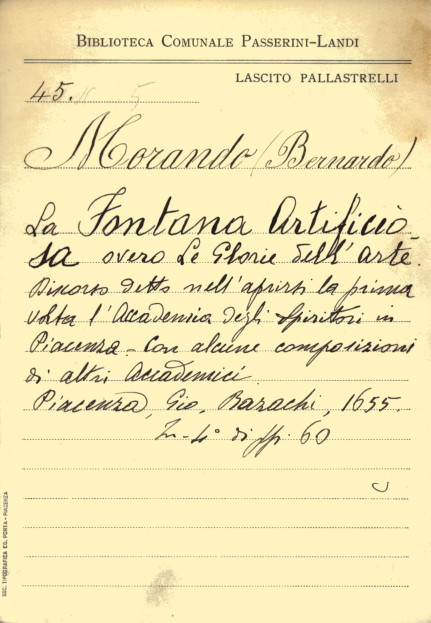 BIBLIOTECA COMUNALE PASSERINI-LANDI
LASCITO PALLASTRELLI
45.
Morando (Bernardo)
La Fontana Artificio-
sa overo Le Glorie dell'arte.
Discorso detto nell'aprirsi la prima
volta l'Accademia degli Spiritosi in
Piacenza - Con alcune composizioni
di altri Accademici.
Piacenza, Gio. Bazachi, 1655.
In-4° di pp. 60
SOC. TIPOGRAFICA ED. PORTA - PIACENZA